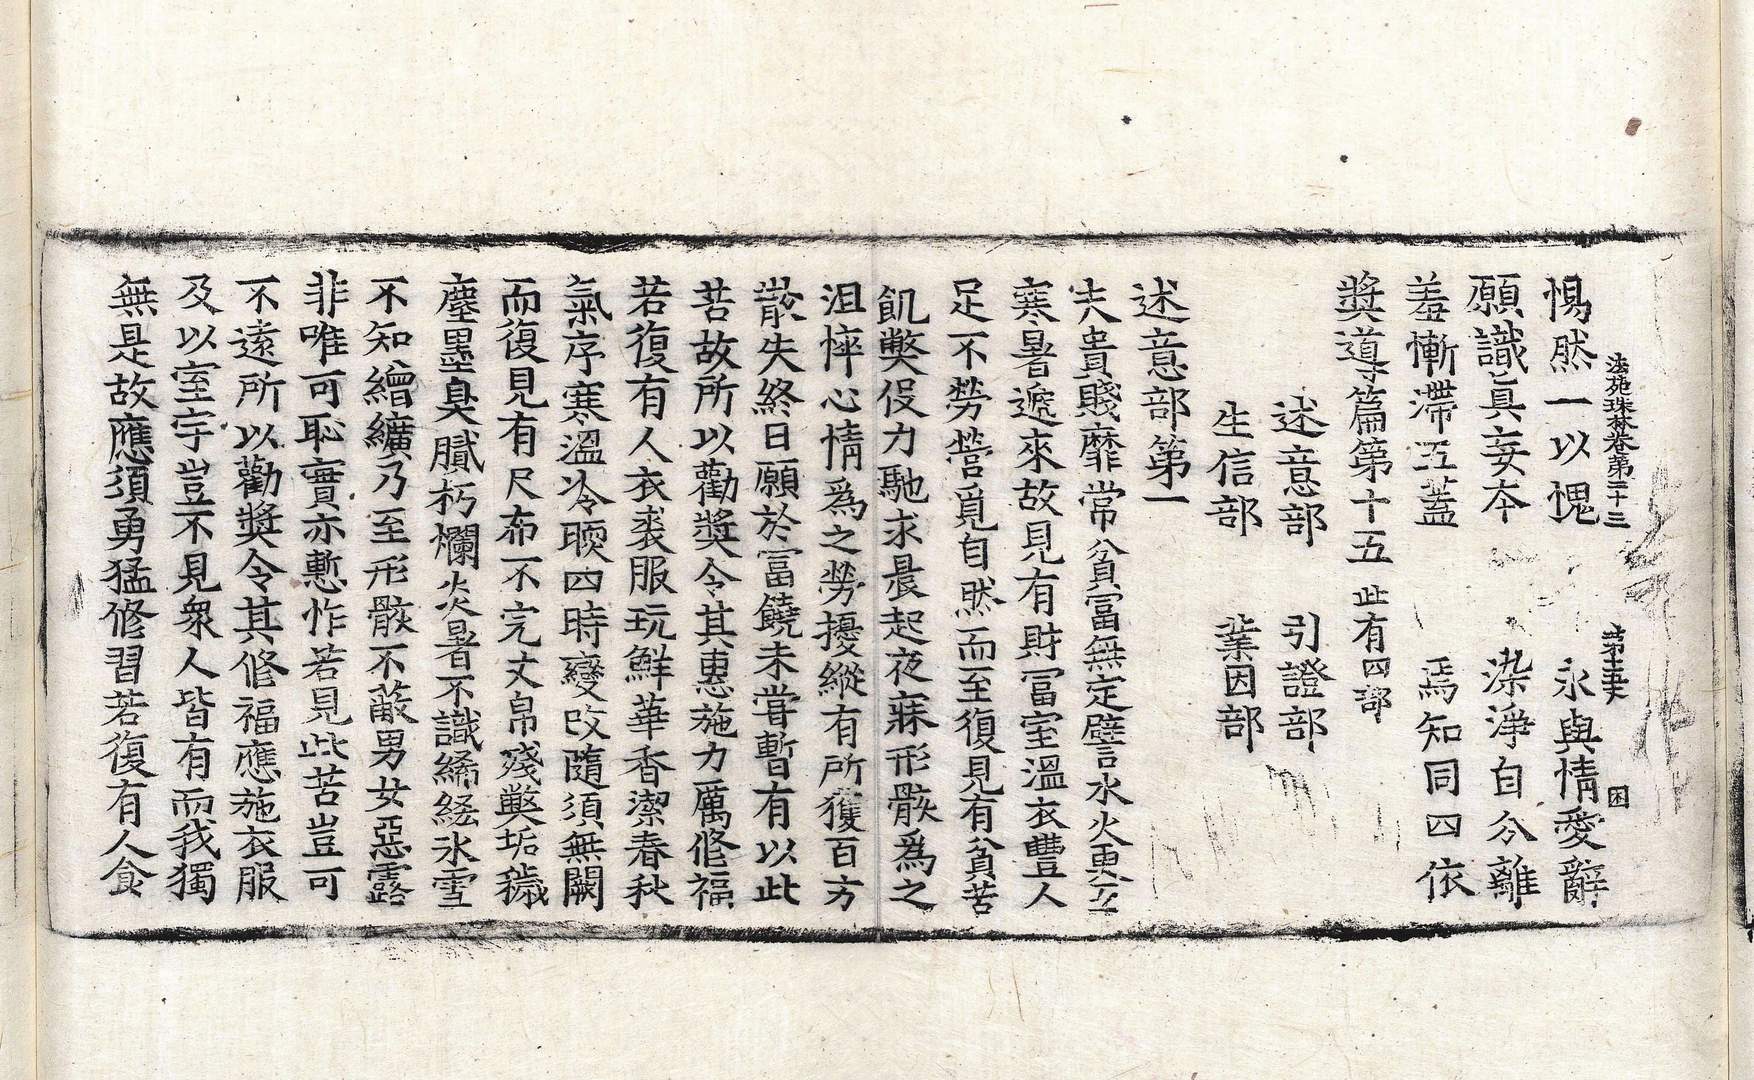 法苑珠林卷第二十三　第十五丈　困
惕然一以愧　永與情愛辭
願識眞妄本　染淨自分離
羞慚滯五蓋　焉知同四依
奬導篇第十五　此有四部
述意部　引證部
生信部　業因部
述意部第一
夫貴賤靡常貧富無定譬水火更互
寒暑遞來故見有財冨室溫衣豊人
足不勞營覓自然而至復見有貧苦
飢弊役力馳求晨起夜寐形骸爲之
沮悴心情爲之勞擾縱有所獲百方
散失終日願於冨饒未甞暫有以此
苦故所以勸奬令其惠施力厲修福
若復有人衣裘服玩鮮華香潔春秋
氣序寒溫冷暖四時變改隨須無闕
而復見有尺布不完丈帛殘弊垢穢
塵墨臭膩朽爛炎暑不識絺綌氷雪
不知繒纊乃至形骸不蔽男女惡露
非唯可恥實亦慙怍若見此苦豈可
不遠所以勸奬令其修福應施衣服
及以室宇豈不見衆人皆有而我獨
無是故應須勇猛修習若復有人食